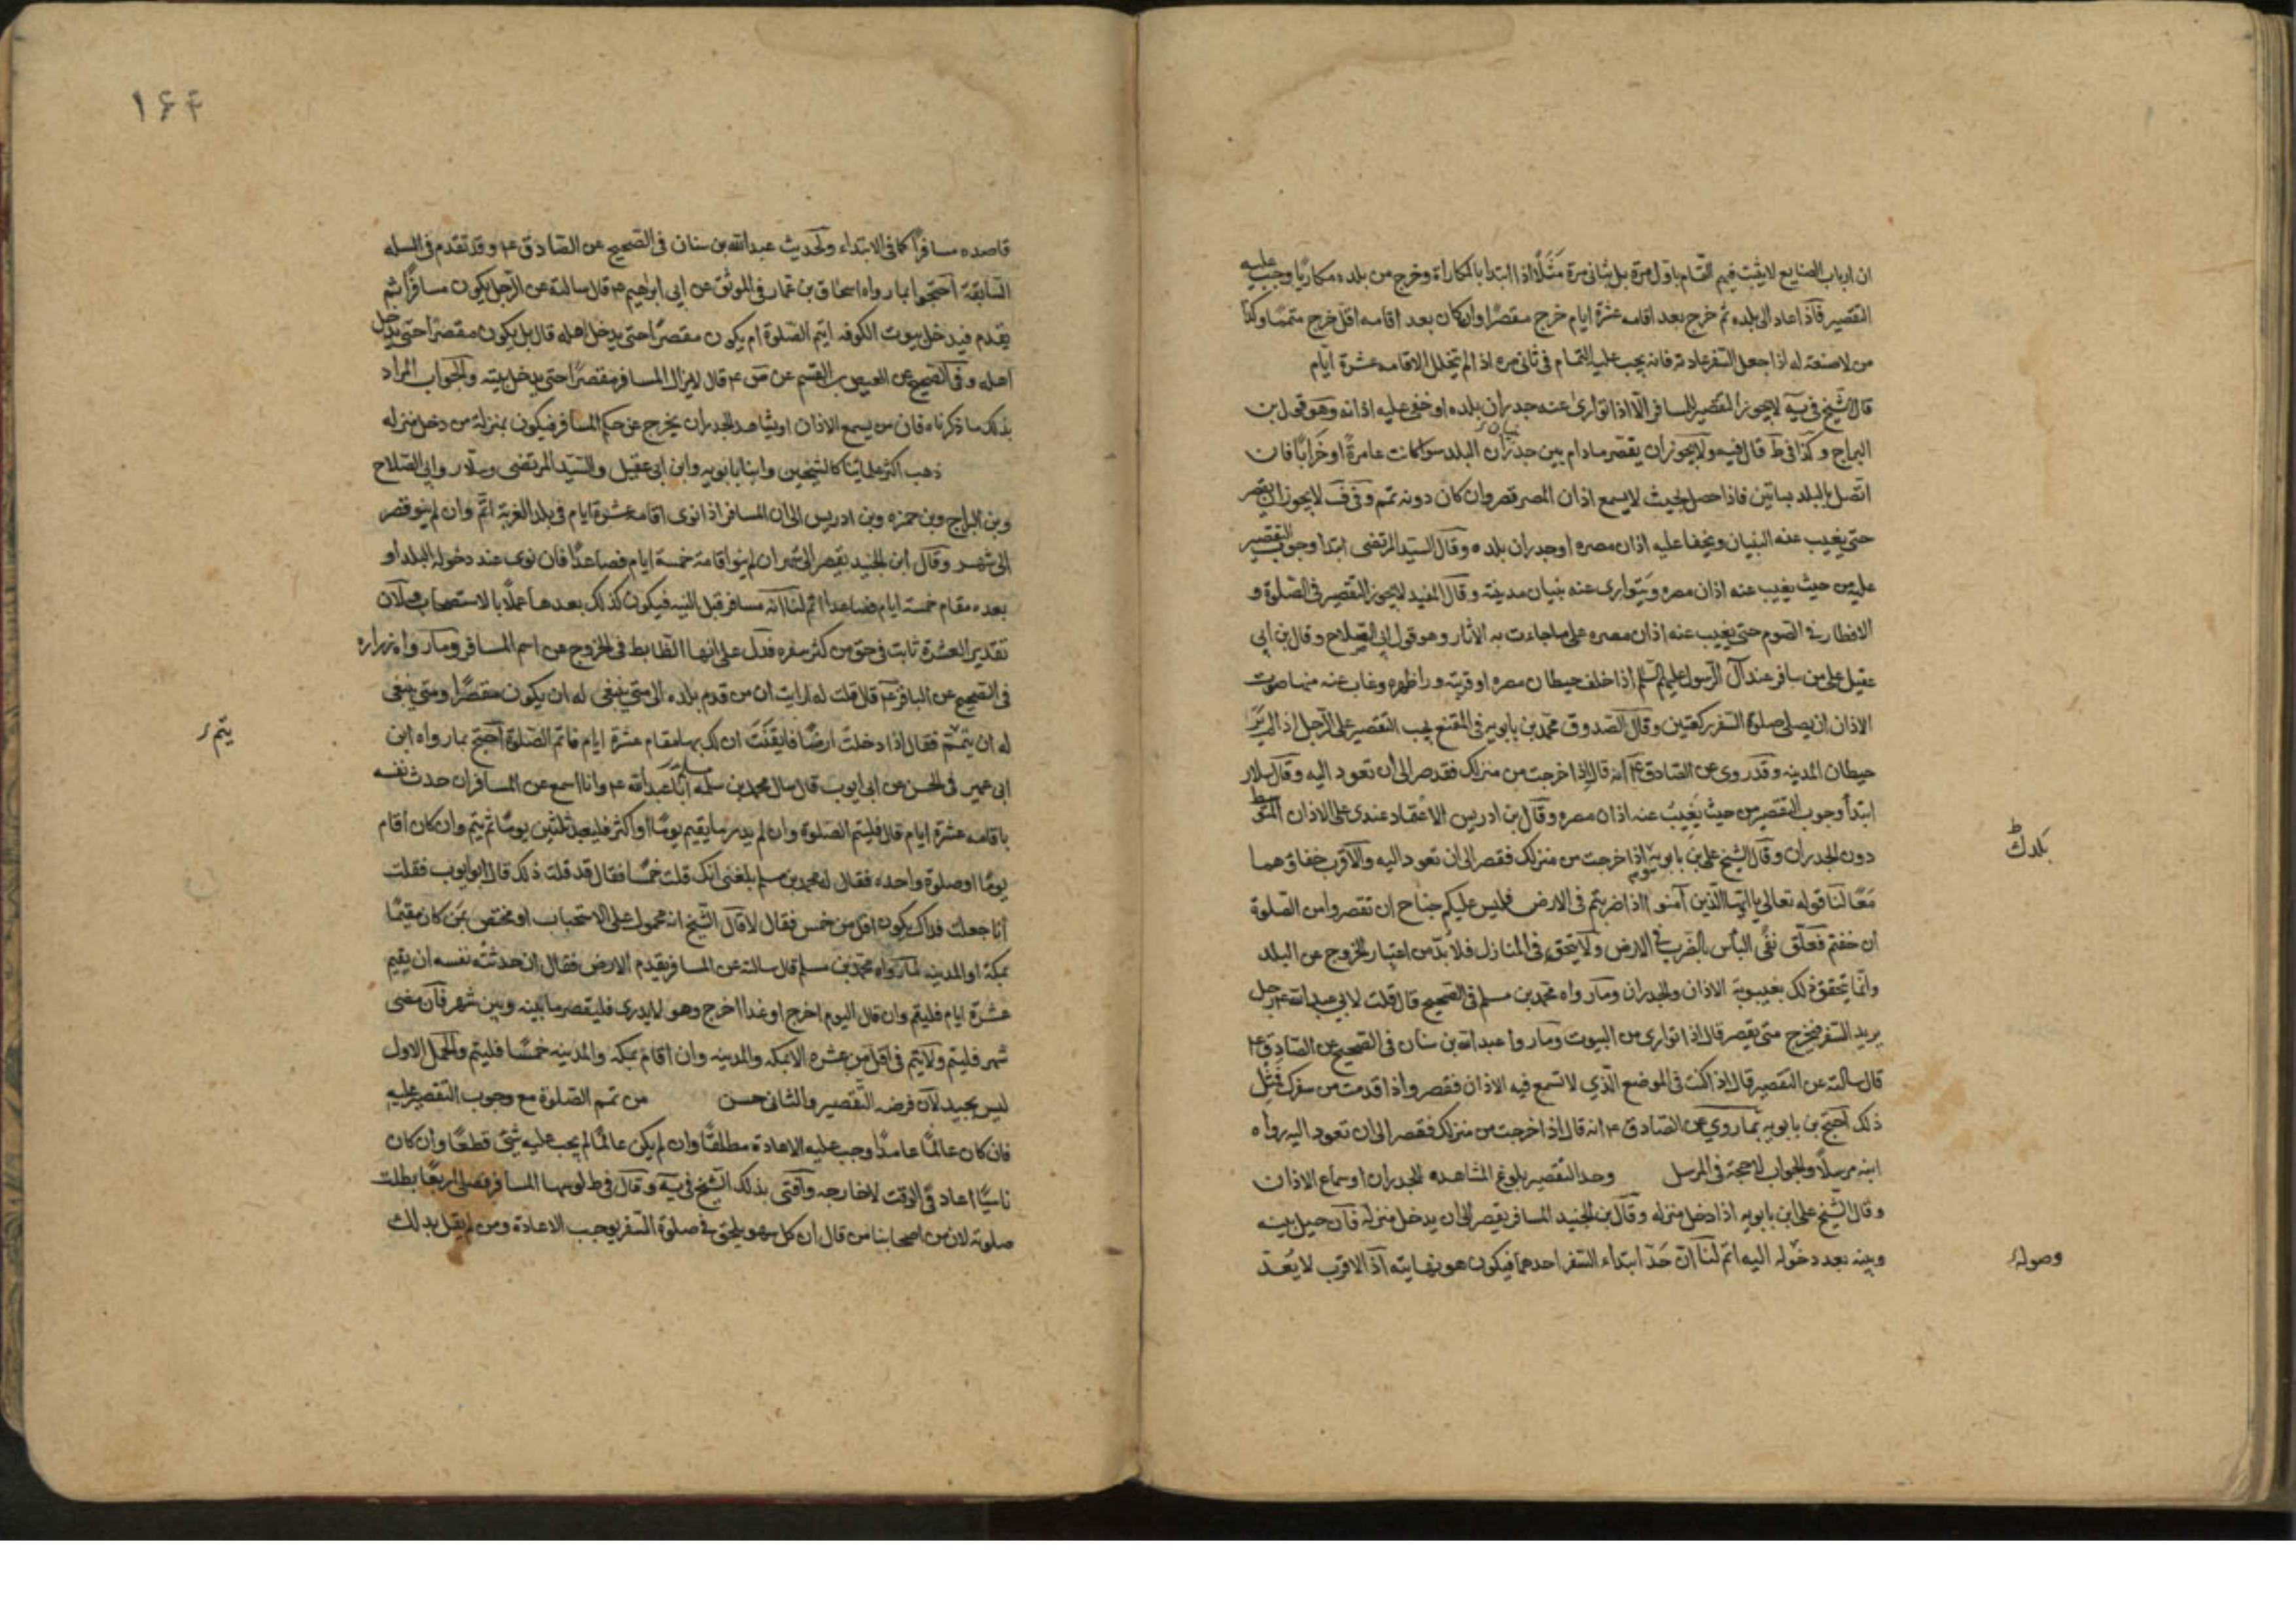 ان ارباب الصنايع لا يثبت فيهم التمام باول مرة بل بثانى مرة مثلًا اذا ابتدا بالمكاراة وخرج من بلده مكاريًا وجب عليه
التقصير فاذا عاد الى بلده ثم خرج بعد اقامه عشرة ايام خرج مقصرًا وان كان بعد اقامه اقل خرج متممًا وكذا
من لا صنعة له اذا جعل السفر عادته فانه يجب عليه التمام فى ثانى مره اذا لم يتخلل الاقامه عشرة ايام
قال الشيخ فى يه لا يجوز التقصير للمسافر الّا اذا توارى عنه جدران بلده او خفى عليه اذانه وهو قول بن
البراج وكذا فى ط قال فيه ولا يجوز ان يقصر مادام بين جدران البلد سوا كانت عامرةً او خرابًا فان
بنيان
اتصل بالبلد بساتين فاذا حصل بحيث لا يسمع اذان المصر قصر وان كان دونه تمم وفى ف لا يجوز ان يقصر
حتى يغيب عنه البنيان ويخفا عليه اذان مصره او جدران بلده وقال السيد المرتضى ابتدا وجوب التقصير
عليه من حيث يغيب عنه اذان مصره ويتوارى عنه بنيان مدينته وقال المفيد لا يجوز التقصير فى الصلوة و
الافطار فى الصوم حتى يغيب عنه اذان مصره على ما جاءت به الآثار وهو قول ابى الصلاح وقال بن ابى
عقيل على من سافر عند آل الرسول عليهم السلم اذا خلف حيطان مصره او قريته وراظهره وغاب عنه منها صوت
الاذان ان يصلى صلوة السفر ركعتين وقال الصدوق محمد بن بابويه فى المقنع يجب التقصير على الرجل اذا لم ير
حيطان المدينه وقد روى عن الصادق ع انه قال اذا خرجت من منزلك فقصر الى ان تعود اليه وقال سلار
ابتدأ وجوب التقصير من حيث يغيب عنه اذان مصره وقال بن ادريس الاعتماد عندى على الاذان المتوسط
دون الجدران وقال الشيخ على بن بابويه اذا خرجت من منزلك فقصر الى ان تعود اليه والاقرب خفاؤهما
معًا لنا قوله تعالى يا ايها الذين آمنوا اذا ضربتم فى الارض فليس عليكم جناح ان تقصروا من الصلوة
ان خفتم فعلّق نفى البأس بالضرب فى الارض ولا يتحقق فى المنازل فلا بدّ من اعتبار الخروج عن البلد
وانما يتحقق ذلك بغيبوبة الاذان والجدران وما رواه محمد بن مسلم فى الصحيح قال قلت لابي عبدالله ع رجل
يريد السفر فيخرج متى يقصر قال اذا توارى من البيوت وما روا عبد الله بن سنان فى الصحيح عن الصادق ع
قال سالته عن التقصير قال اذا كنت فى الموضع الذي لا تسمع فيه الاذان فقصر واذا قدمت من سفرك فمثل
ذلك احتج بن بابويه بما روي عن الصادق ع انه قال اذا خرجت من منزلك فقصر الى ان تعود اليه رواه
ابنه مرسلًا والجواب لا حجة فى المرسل وحد التقصير بلوغ المشاهده للجدران او سماع الاذان
وقال الشيخ على ابن بابويه اذا دخل منزله وقال بن الجنيد المسافر يقصر الى ان يدخل منزله فان حيل بينه
وبينه بعد دخوله اليه اتم لنا ان حدّ ابتداء السفر احدهما فيكون هو نهايته اذ الاقرب لا يعدّ
بلدك
وصوله
١۶۴
قاصده مسافرًا كما فى الابتداء ولحديث عبدالله بن سنان فى الصحيح عن الصادق ع وقد تقدم فى المسله
السابقة احتجوا بما رواه اسحاق بن عمار فى الموثق عن ابى ابراهيم ع قال سالته عن الرجل يكون مسافرًا ثم
يقدم فيدخل بيوت الكوفه ايتم الصلوة ام يكون مقصرًا حتى يدخل اهله قال بل يكون مقصرًا حتى يدخل
اهله وفى الصحيح عن العيص بن القسم عن ص ع قال لا يزال المسافر مقصرًا حتى يدخل بيته والجواب المراد
بذلك ما ذكرناه فان من يسمع الاذان او يشاهد الجدران يخرج عن حكم المسافر فيكون بمنزلة من دخل منزله
ذهب اكثر علمائنا كالشيخين وابنا بابويه وابن ابى عقيل والسيد المرتضى وسلار وابى الصلاح
وبن البراج وبن حمزه وبن ادريس الى ان المسافر اذا نوى اقامه عشرة ايام فى بلد الغربة اتم وان لم ينو قصر
الى شهر وقال ابن الجنيد يقصر الى شهر ان لم ينو اقامة خمسة ايام فصاعدًا فان نوى عند دخوله البلد او
بعده مقام خمسة ايام فصاعدا اتم لنا انه مسافر قبل النيه فيكون كذلك بعدها عملًا بالاستصحاب ولان
تقدير العشرة ثابت فى حق من كثر سفره فدل على انها الضابط فى الخروج عن اسم المسافر وما رواه زراره
فى الصحيح عن الباقر ع قال قلت له ارايت ان من قدم بلده الى متى ينبغى له ان يكون مقصرًا ومتى ينبغى
له ان يتمم فقال اذا دخلت ارضًا فايقنت ان لك بها مقام عشرة ايام فاتم الصلوة احتج بما رواه ابن
ابى عمير فى الحسن عن ابى ايوب قال سال محمد بن سلمه ابا عبدالله ع وانا اسمع عن المسافر ان حدث نفسه
مسلم
باقامه عشرة ايام قال فليتم الصلوة وان لم يدر ما يقيم يومًا او اكثر فليعد ثلثين يومًا ثم يتم وان كان اقام
يومًا او صلوة واحده فقال له محمد بن مسلم بلغنى انك قلت خمسًا فقال قد قلت ذلك قال ابو ايوب فقلت
انا جعلت فداك يكون اقل من خمس فقال لا قال الشيخ انه محمول على الاستحباب او مختص بمن كان مقيمًا
بمكة او المدينه لما رواه محمد بن مسلم قال سالته عن المسافر يقدم الارض فقال ان حدثته نفسه ان يقيم
عشرة ايام فليتم وان قال اليوم اخرج او غدا اخرج وهو لا يدرى فليقصر ما بينه وبين شهر فان مضى
شهر فليتم ولا يتم فى اقل من عشره الا بمكه والمدينه وان اقام بمكه والمدينه خمسًا فليتم والحمل الاول
ليس بجيد لان فرضه التقصير والثانى حسن من تمم الصلوة مع وجوب التقصير عليه
فان كان عالمًا عامدًا وجب عليه الاعادة مطلقًا وان لم يكن عالمًا لم يجب عليه شئ قطعًا وان كان
ناسيًا اعاد فى الوقت لا خارجه وافتى بذلك الشيخ فى يه وقال فى ط لو سها المسافر فصلى اربعًا بطلت
صلوته لان من اصحابنا من قال ان كل سهو يلحق فى صلوة السفر يوجب الاعادة ومن لم يقل بذلك
يتم